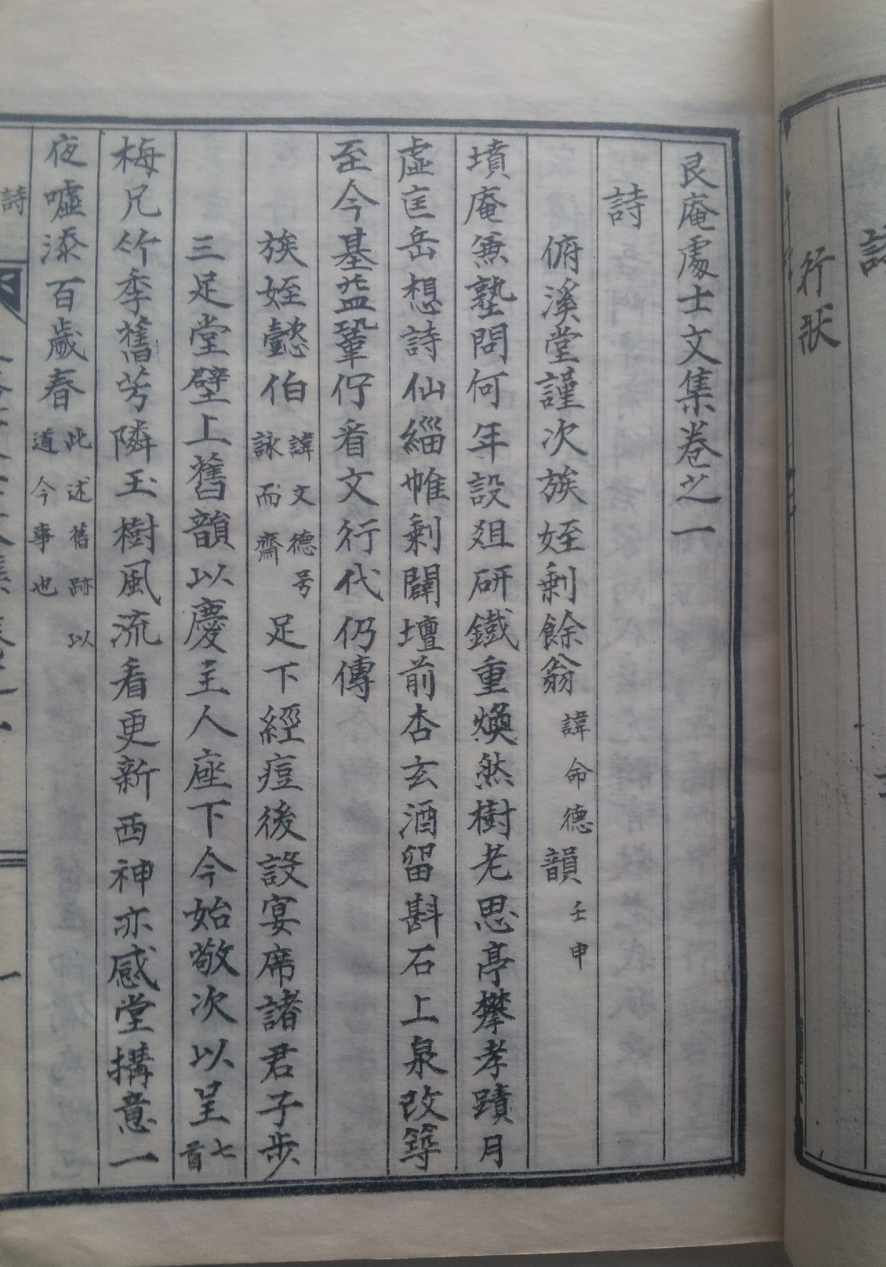 行狀
艮庵處士文集卷之一
詩
俯溪堂謹次族姪剩餘翁諱命德韻壬申
墳庵兼塾問何年設俎研鐵重煥然樹老思亭攀孝蹟月
虛匡岳想詩仙緇帷剩闢壇前杏玄酒留斟石上泉改築
至今基益鞏佇看文行代仍傳
族姪懿伯諱文德号詠而齋足下經痘後設宴席諸君子步
三足堂壁上舊韻以慶主人座下今始敬次以呈七首
梅兄竹季舊芳隣玉樹風流看更新西神亦感堂搆意一
夜噓添百歲春此述舊跡以道今事也
詩